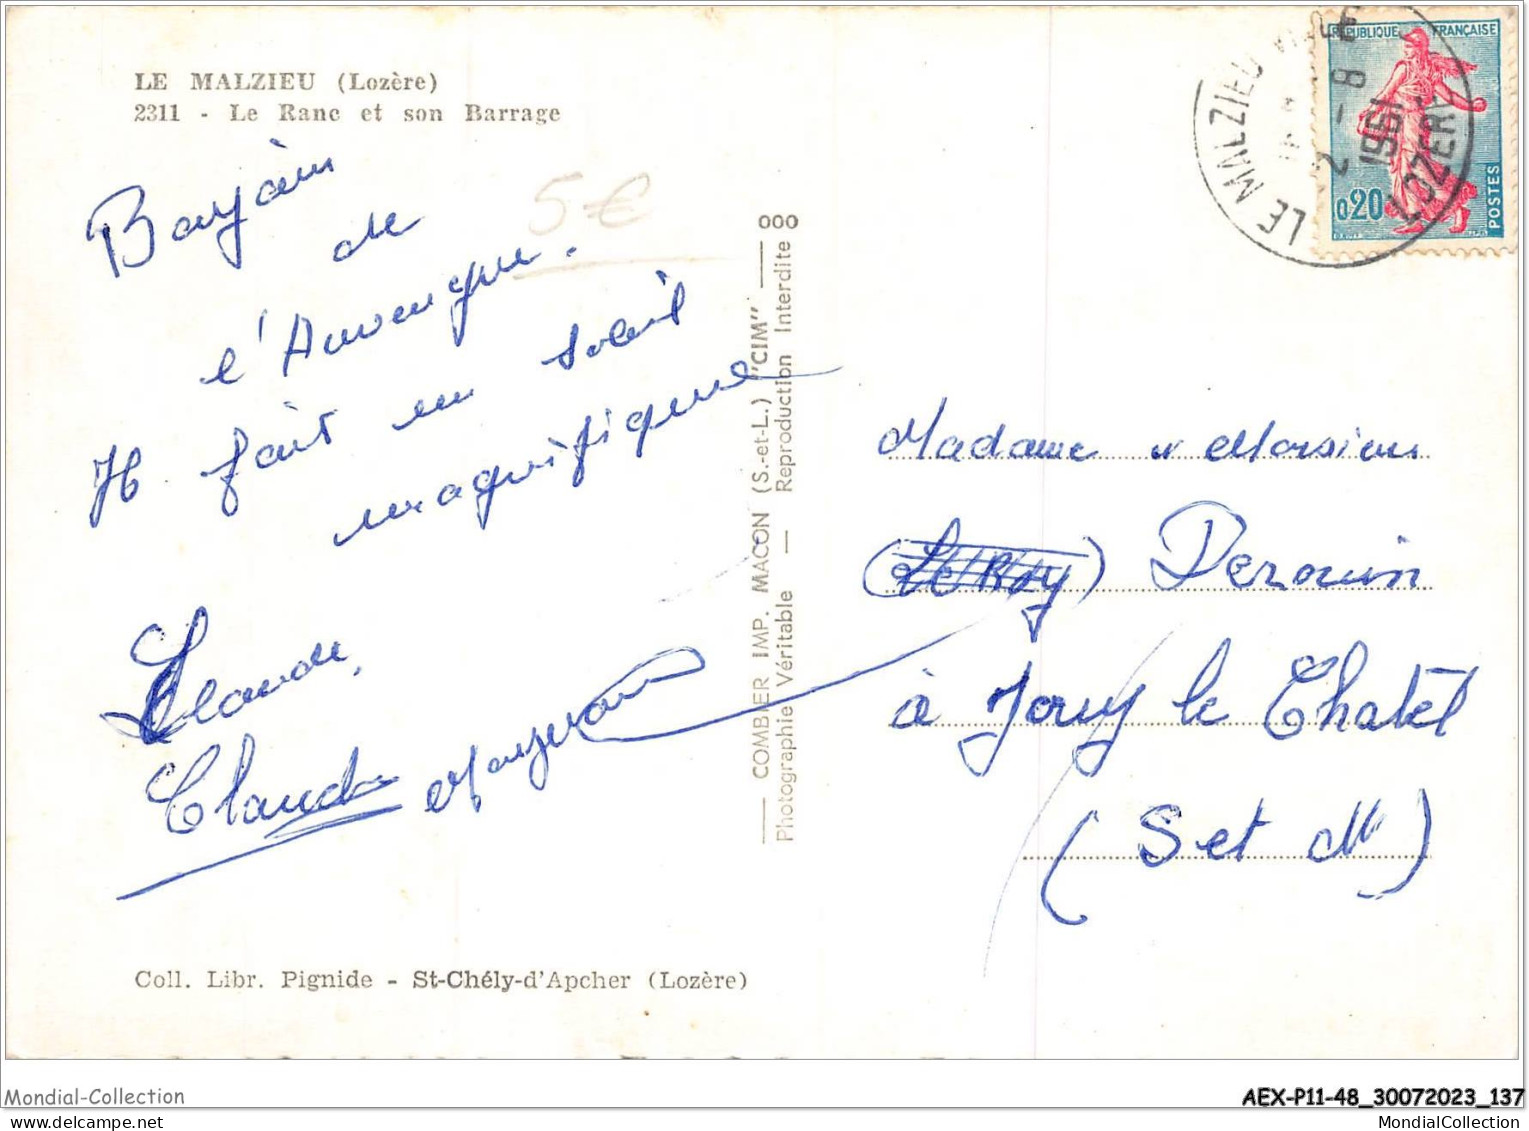 LE MALZIEU (Lozère)
2311 - Le Ranc et son Barrage
5€
de
l'Auvergne.
Il fait un soleil
magnifique
Claude,
Claude
COMBIER IMP. MACON (S.-et-L.) "CIM"
Photographie Véritable — Reproduction Interdite
000
RÉPUBLIQUE FRANÇAISE
0,20
POSTES
LE MALZIEU VILLE
2 - 8
1961
LOZERE
Madame et Monsieur
(Le Roy) Derouin
à Jouy le Chatel
(S et M)
Coll. Libr. Pignide - St-Chély-d'Apcher (Lozère)
Mondial-Collection
AEX-P11-48_30072023_137
MondialCollection